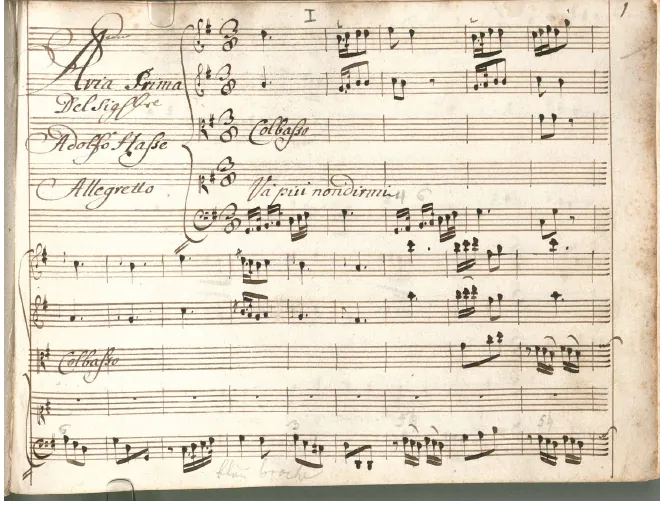 I
1
Aria Prima
Del Sig.re
Adolfo Hasse
Allegretto
Colbasso
Va piu non dirmi
4 6
Colbasso
6